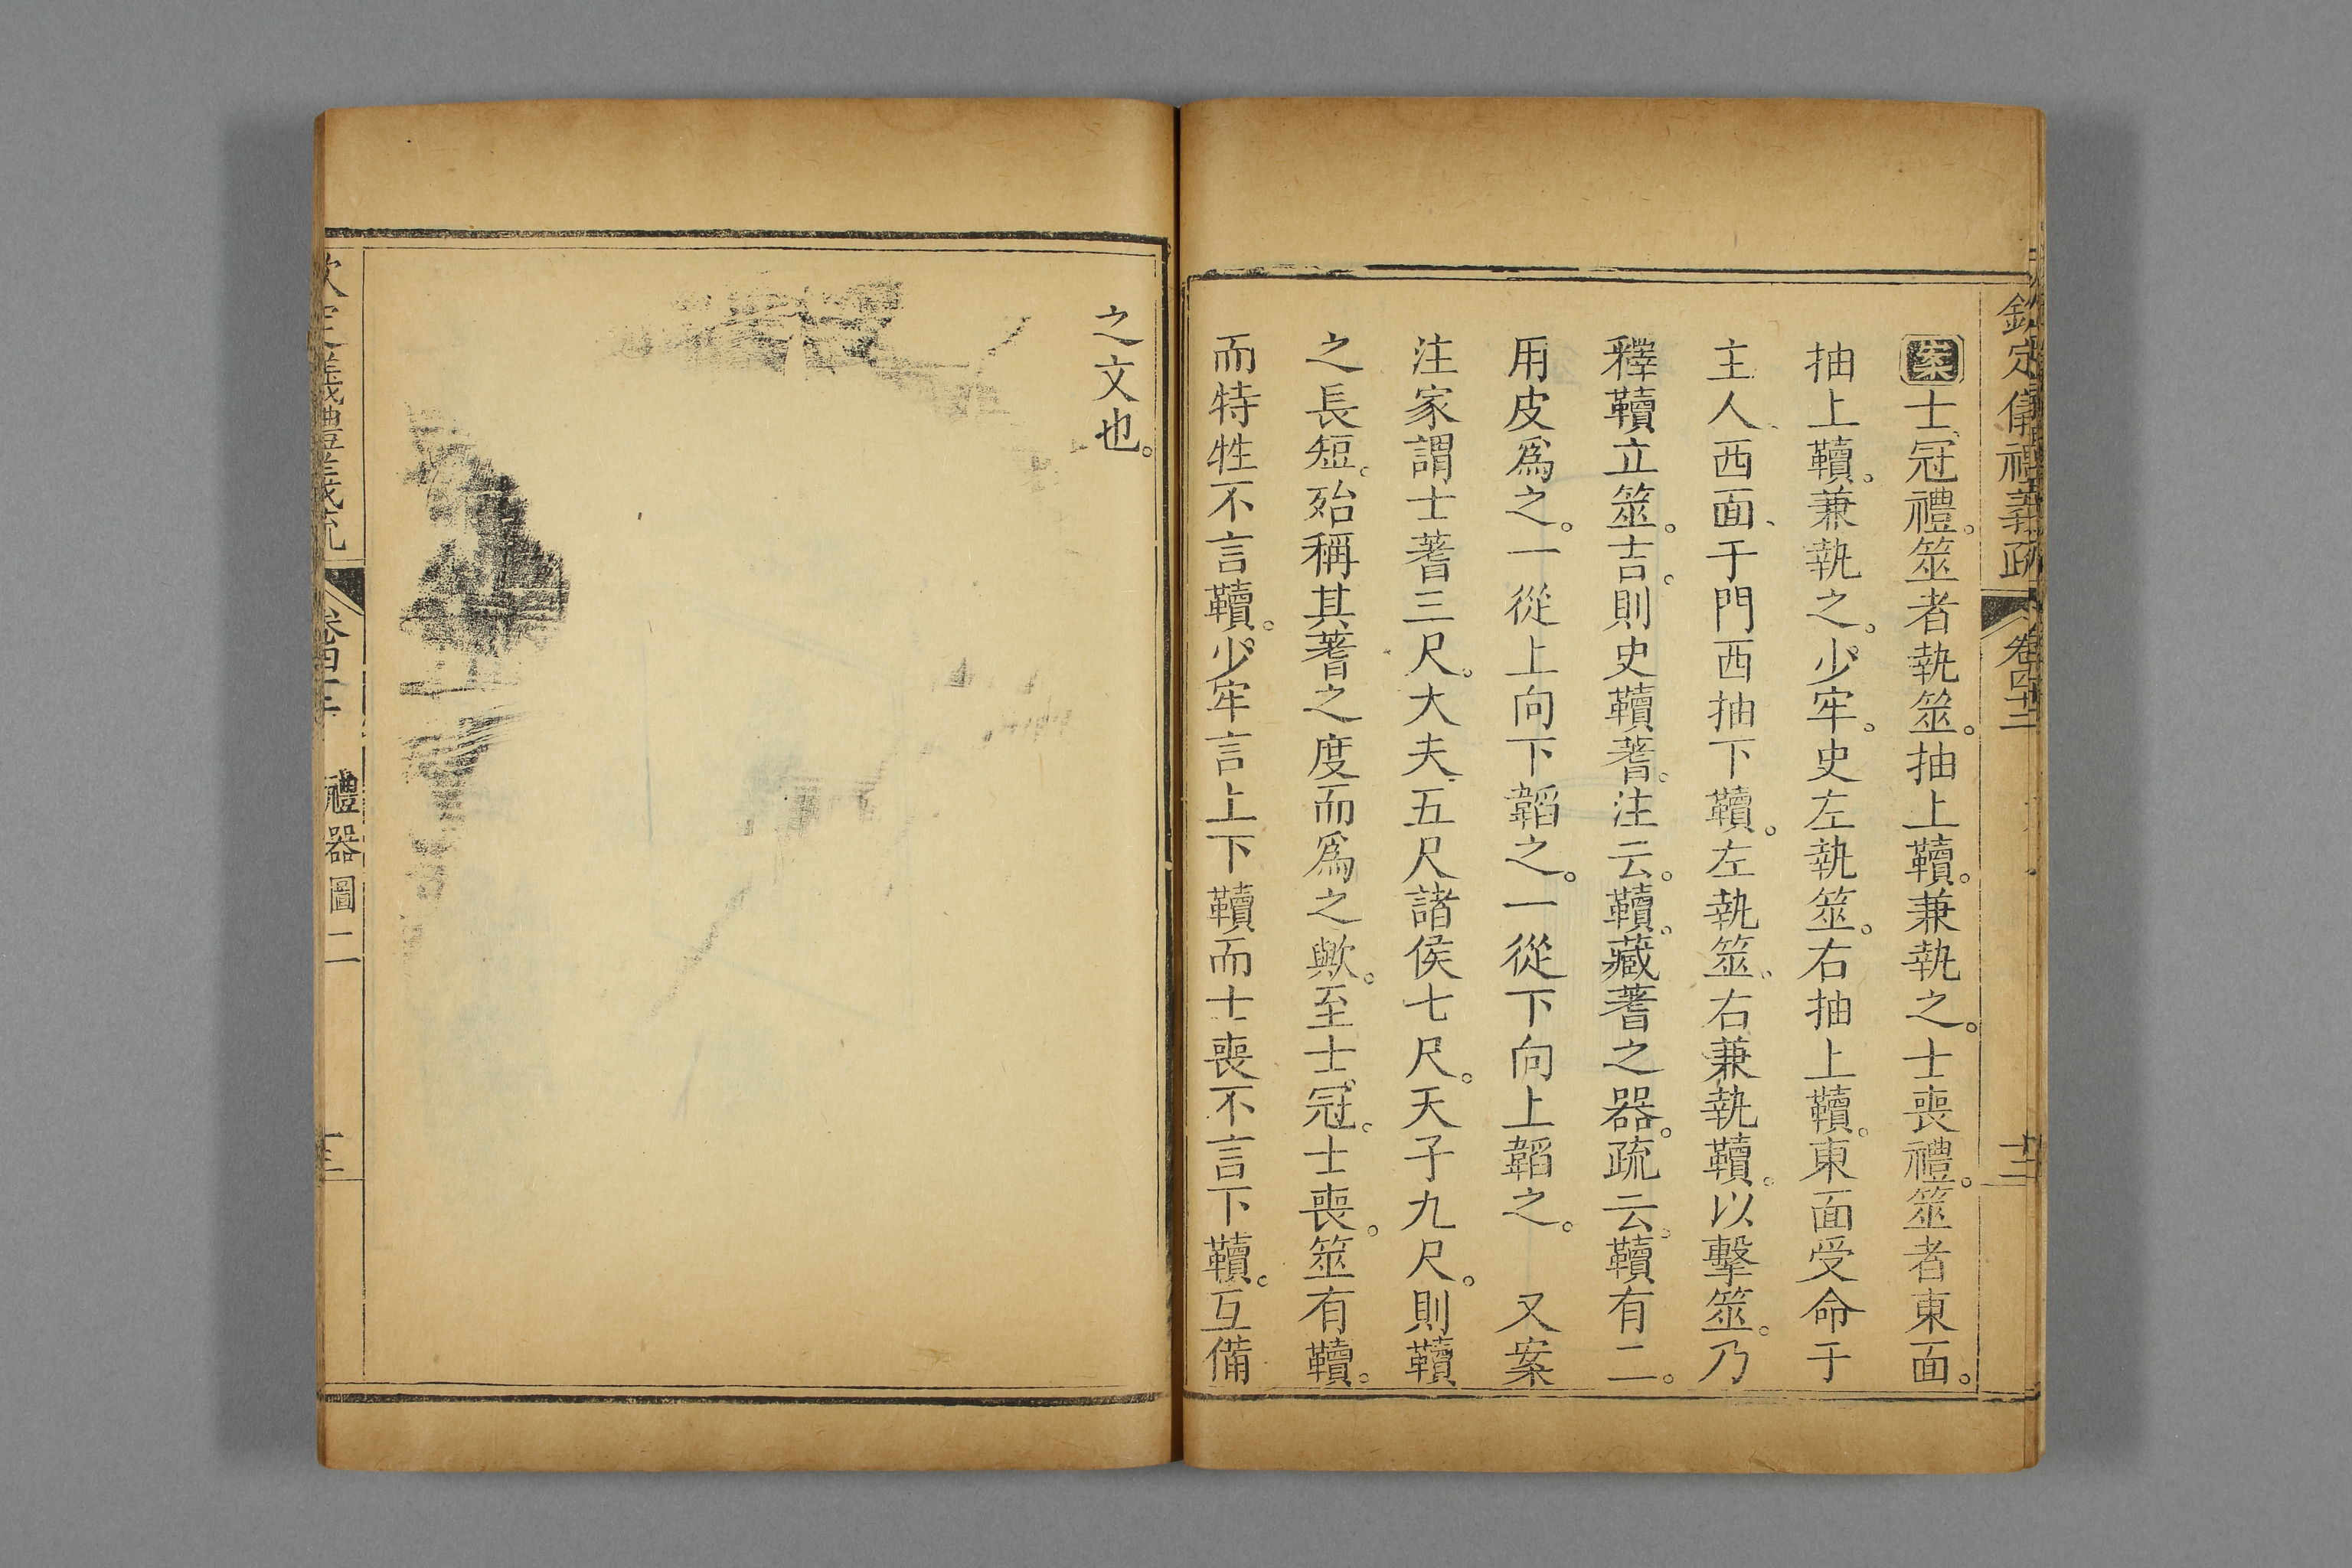 欽定儀禮義疏 卷四十二 十二
案士冠禮。筮者執筮。抽上韇。兼執之。士喪禮。筮者東面。
抽上韇。兼執之。少牢。史左執筮。右抽上韇。東面受命于
主人、西面、于門西抽下韇。左執筮、右兼執韇。以擊筮。乃
釋韇立筮。吉。則史韇蓍。注云。韇。藏蓍之器。疏云。韇有二。
用皮爲之。一從上向下韜之。一從下向上韜之。 又案
注家謂士蓍三尺。大夫五尺諸侯七尺。天子九尺。則韇
之長短。殆稱其蓍之度而爲之歟。至士冠。士喪。筮有韇。
而特牲不言韇。少牢言上下韇而士喪不言下韇。互備
之文也。
欽定儀禮義疏 卷四十二 禮器圖二 十三